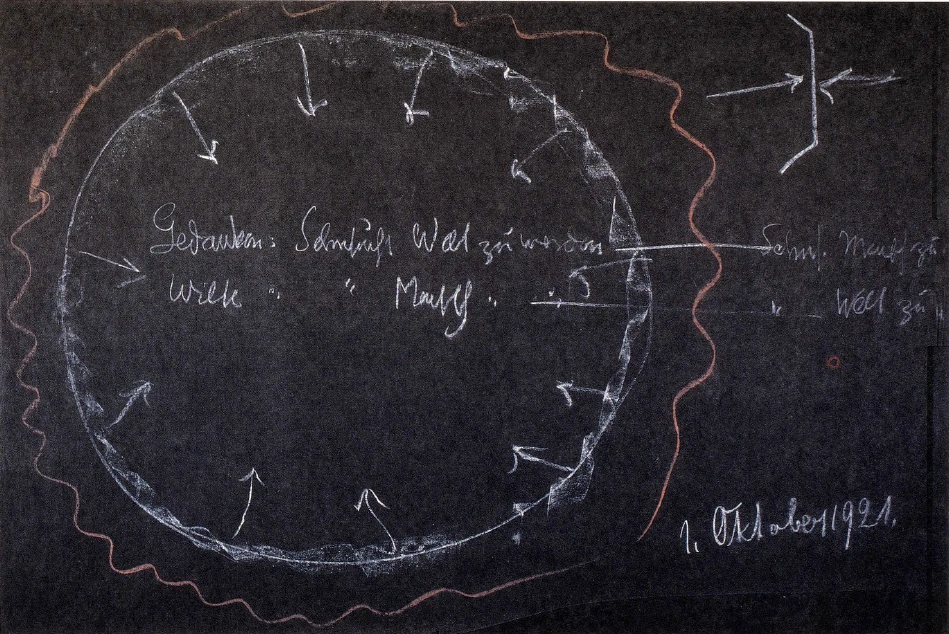 Gedanken: Sehnsucht Welt zu werden Sehns. Mensch zu
Wille " " Mensch " " Welt zu "
1. Oktober 1921.